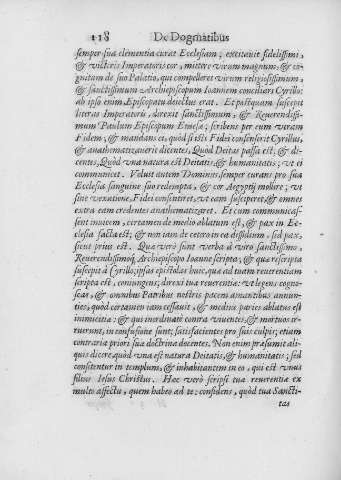 118 De Dogmatibus
semper sua clementia curat Ecclesiam; excitauit fidelissimi,
& victoris Imperatoris cor, mittere virum magnum, & co-
gnitum de suo Palatio, qui compelleret virum religiosissimum,
& sanctissimum Archiepiscopum Ioannem conciliari Cyrillo:
ab ipso enim Episcopatu deiectus erat. Et postquam suscepit
literas Imperatoris, direxit sanctissimum, & Reuerendissi-
mum Paulum Episcopum Emesæ; scribens per eum veram
Fidem, & mandans ei, quòd si isti Fidei consenserit Cyrillus,
& anathematizauerit dicentes, Quòd Deitas passa est, & di-
centes, Quòd vna natura est Deitatis, & humanitatis; vt ei
communicet. Voluit autem Dominus, semper curans pro sua
Ecclesia sanguine suo redempta, & cor Aegyptij mollire; vt
sine vexatione, Fidei consentiret, vt eam susciperet, & omnes
extra eam credentes anathematizaret. Et cum communicas-
sent inuicem, certamen de medio ablatum est, & pax in Ec-
clesia facta est; & non iam de cetero in ea dissidium, sed pax,
sicut prius est. Quæ verò sint verba à viro sanctissimo,
Reuerendissimoq; Archiepiscopo Ioanne scripta; & quæ rescripta
suscepit à Cyrillo; ipsas epistolas huic, quæ ad tuam reuerentiam
scripta est, coniungens; direxi tuæ reuerentiæ: vt legens cognos-
cas, & omnibus Patribus nostris pacem amantibus annun-
ties, quòd certamen iam cessauit, & medius paries ablatus est
inimicitiæ: & qui inordinatè contra viuentes, & mortuos ir-
ruerunt, in confusione sunt; satisfacientes pro suis culpis; etiam
contraria priori suæ doctrinæ docentes. Non enim præsumit ali-
quis dicere, quòd vna est natura Deitatis, & humanitatis; sed
consitentur in templum, & inhabitantem in eo, qui est vnus
filius Iesus Christus. Hæc verò scripsi tuæ reuerentiæ ex
multo affectu, quem habeo ad te: confidens, quòd tua Sancti-
tas